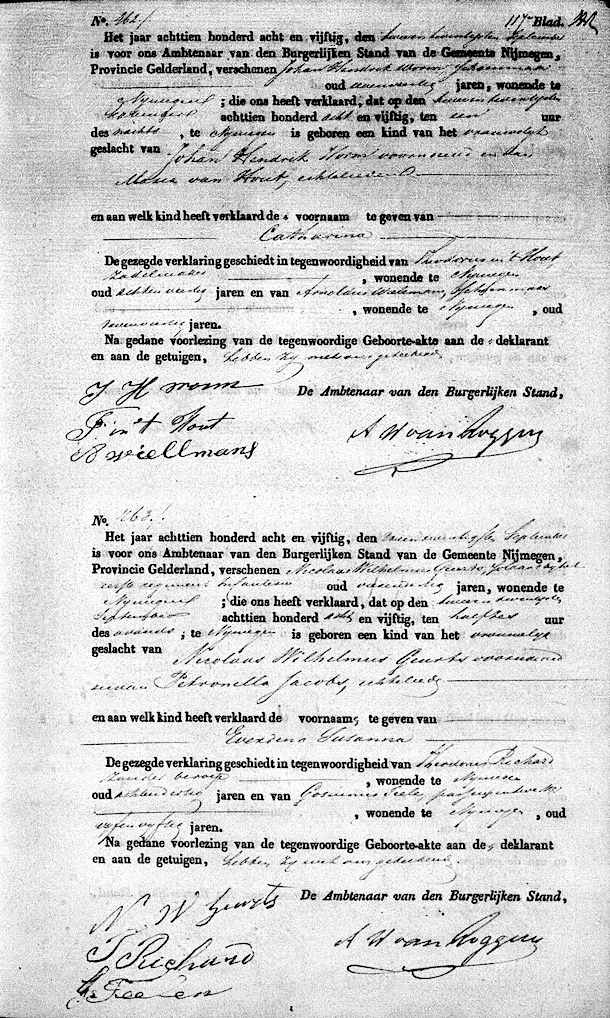 No. 462. 117e Blad.
Het jaar achttien honderd acht en vijftig, den tweeentwintigsten September
is voor ons Ambtenaar van den Burgerlijken Stand van de Gemeente Nijmegen,
Provincie Gelderland, verschenen Johan Hendrik Worm,
oud jaren, wonende te
Nijmegen ; die ons heeft verklaard, dat op den tweeentwintigsten
September achttien honderd acht en vijftig, ten een uur
des nachts , te Nijmegen is geboren een kind van het vrouwelijk
geslacht van Johan Hendrik Worm voornoemd en van
Maria van Hout, echtelieden
en aan welk kind heeft verklaard de voornaam te geven van
Catharina
De gezegde verklaring geschiedt in tegenwoordigheid van Theodorus in 't Hout
Zadelmaker , wonende te Nijmegen
oud achtenveertig jaren en van Arnoldus , wonende te Nijmegen , oud
jaren.
Na gedane voorlezing van de tegenwoordige Geboorte-akte aan de deklarant
en aan de getuigen, hebben zij met ons geteekend
J H worm De Ambtenaar van den Burgerlijken Stand,
T in 't Hout
A W van Roggen
No. 463.
Het jaar achttien honderd acht en vijftig, den September
is voor ons Ambtenaar van den Burgerlijken Stand van de Gemeente Nijmegen,
Provincie Gelderland, verschenen Nicolaas Wilhelmus Geurts, bij het
eerste regiment infanterie oud jaren, wonende te
Nijmegen ; die ons heeft verklaard, dat op den tweeentwintigsten
September achttien honderd acht en vijftig, ten half zes uur
des avonds ; te Nijmegen is geboren een kind van het vrouwelijk
geslacht van Nicolaas Wilhelmus Geurts voornoemd
en van Petronella Jacobs, echtelieden
en aan welk kind heeft verklaard de voornaam te geven van
Everdina Susanna
De gezegde verklaring geschiedt in tegenwoordigheid van Theodorus Richard
zonder beroep , wonende te Nijmegen
oud achtendertig jaren en van Gosuinus
, wonende te Nijmegen , oud
vijfenvijftig jaren.
Na gedane voorlezing van de tegenwoordige Geboorte-akte aan de deklarant
en aan de getuigen, hebben zij met ons geteekend
N W Geurts De Ambtenaar van den Burgerlijken Stand,
T Richard
A W van Roggen